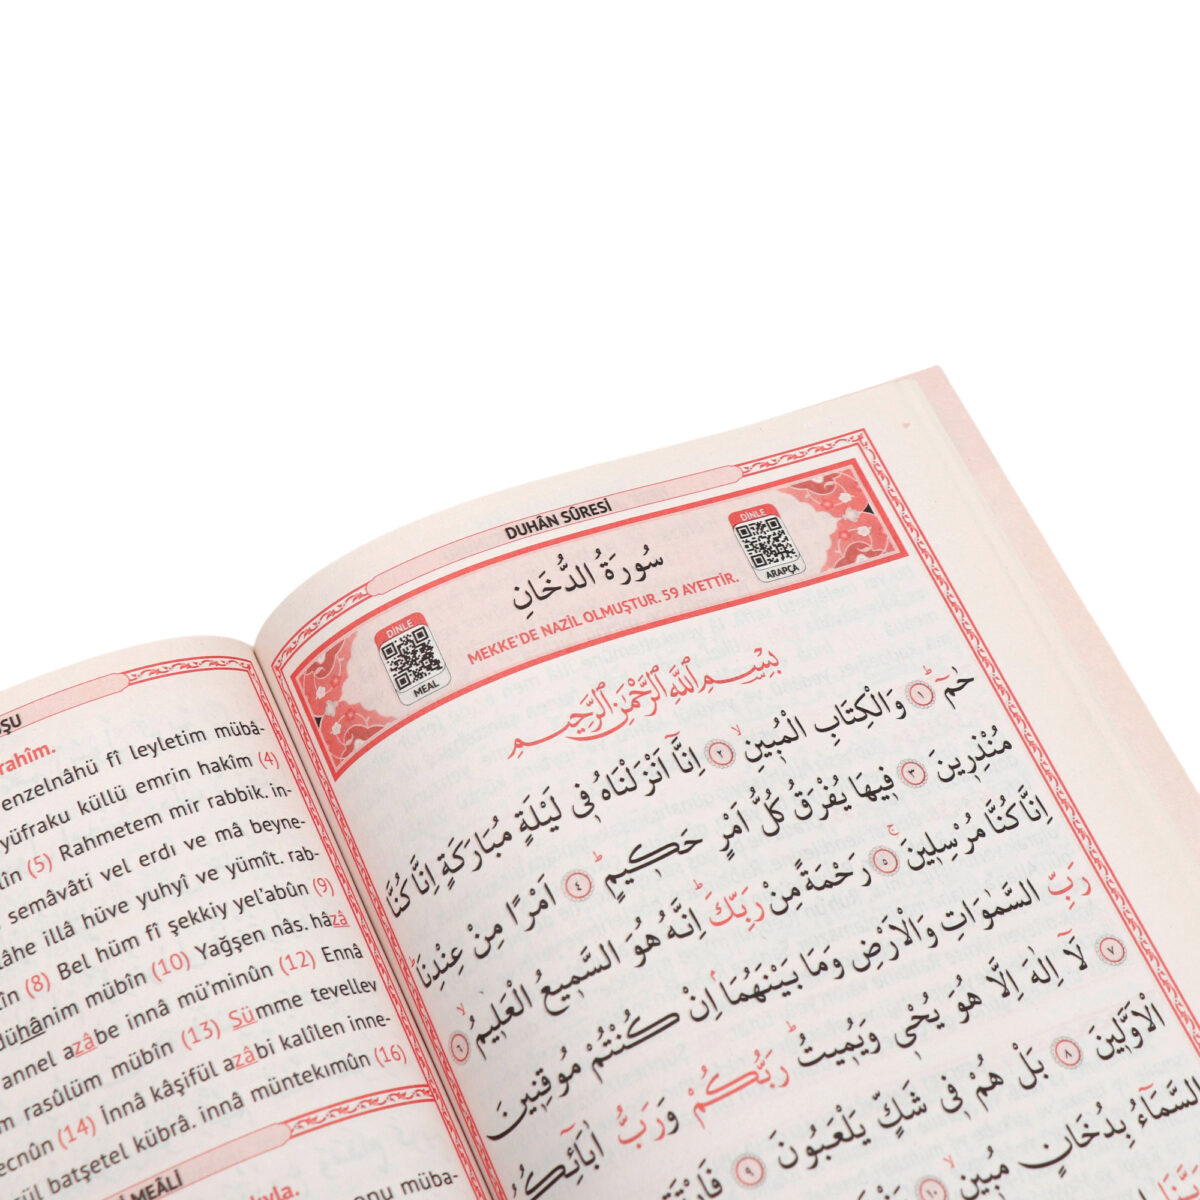 UŞU
rahîm.
enzelnâhü fî leyletim mübâ-
yüfraku küllü emrin hakîm (4)
lîn (5) Rahmetem mir rabbik. in-
semâvâti vel erdı ve mâ beyne-
lâhe illâ hüve yuhyî ve yümît. rab-
în (8) Bel hüm fî şekkiy yel'abûn (9)
dühânim mübîn (10) Yağşen nâs. hâzâ
annel azâbe innâ mü'minûn (12) Ennâ
m rasûlüm mübîn (13) Sümme tevellev
ecnûn (14) İnnâ kâşifül azâbi kalîlen inne-
şül batşetel kübrâ. innâ müntekımûn (16)
MEÂLİ
DUHÂN SÛRESİ
سُورَةُ الدُّخَانِ
DİNLE
ARAPÇA
DİNLE
MEAL
MEKKE'DE NAZİL OLMUŞTUR. 59 AYETTİR.
بِسْمِ اللّٰهِ الرَّحْمٰنِ الرَّحِيمِ
حٰمٓ ۚ ﴿١﴾ وَالْكِتَابِ الْمُبِينِ ۙ ﴿٢﴾ اِنَّٓا اَنْزَلْنَاهُ فِي لَيْلَةٍ مُبَارَكَةٍ اِنَّا كُنَّا
مُنْذِرِينَ ﴿٣﴾ فِيهَا يُفْرَقُ كُلُّ اَمْرٍ حَكِيمٍ ۙ ﴿٤﴾ اَمْرًا مِنْ عِنْدِنَا
اِنَّا كُنَّا مُرْسِلِينَ ۚ ﴿٥﴾ رَحْمَةً مِنْ رَبِّكَ اِنَّهُ هُوَ السَّمِيعُ الْعَلِيمُ ۙ ﴿٦﴾
رَبِّ السَّمٰوَاتِ وَالْاَرْضِ وَمَا بَيْنَهُمَا اِنْ كُنْتُمْ مُوقِنِينَ
﴿٧﴾ لَٓا اِلٰهَ اِلَّا هُوَ يُحْيِي وَيُمِيتُ رَبُّكُمْ وَرَبُّ اٰبَٓائِكُمُ
الْاَوَّلِينَ ﴿٨﴾ بَلْ هُمْ فِي شَكٍّ يَلْعَبُونَ ﴿٩﴾
السَّمَٓاءُ بِدُخَانٍ مُبِينٍ ۙ ﴿١٠﴾